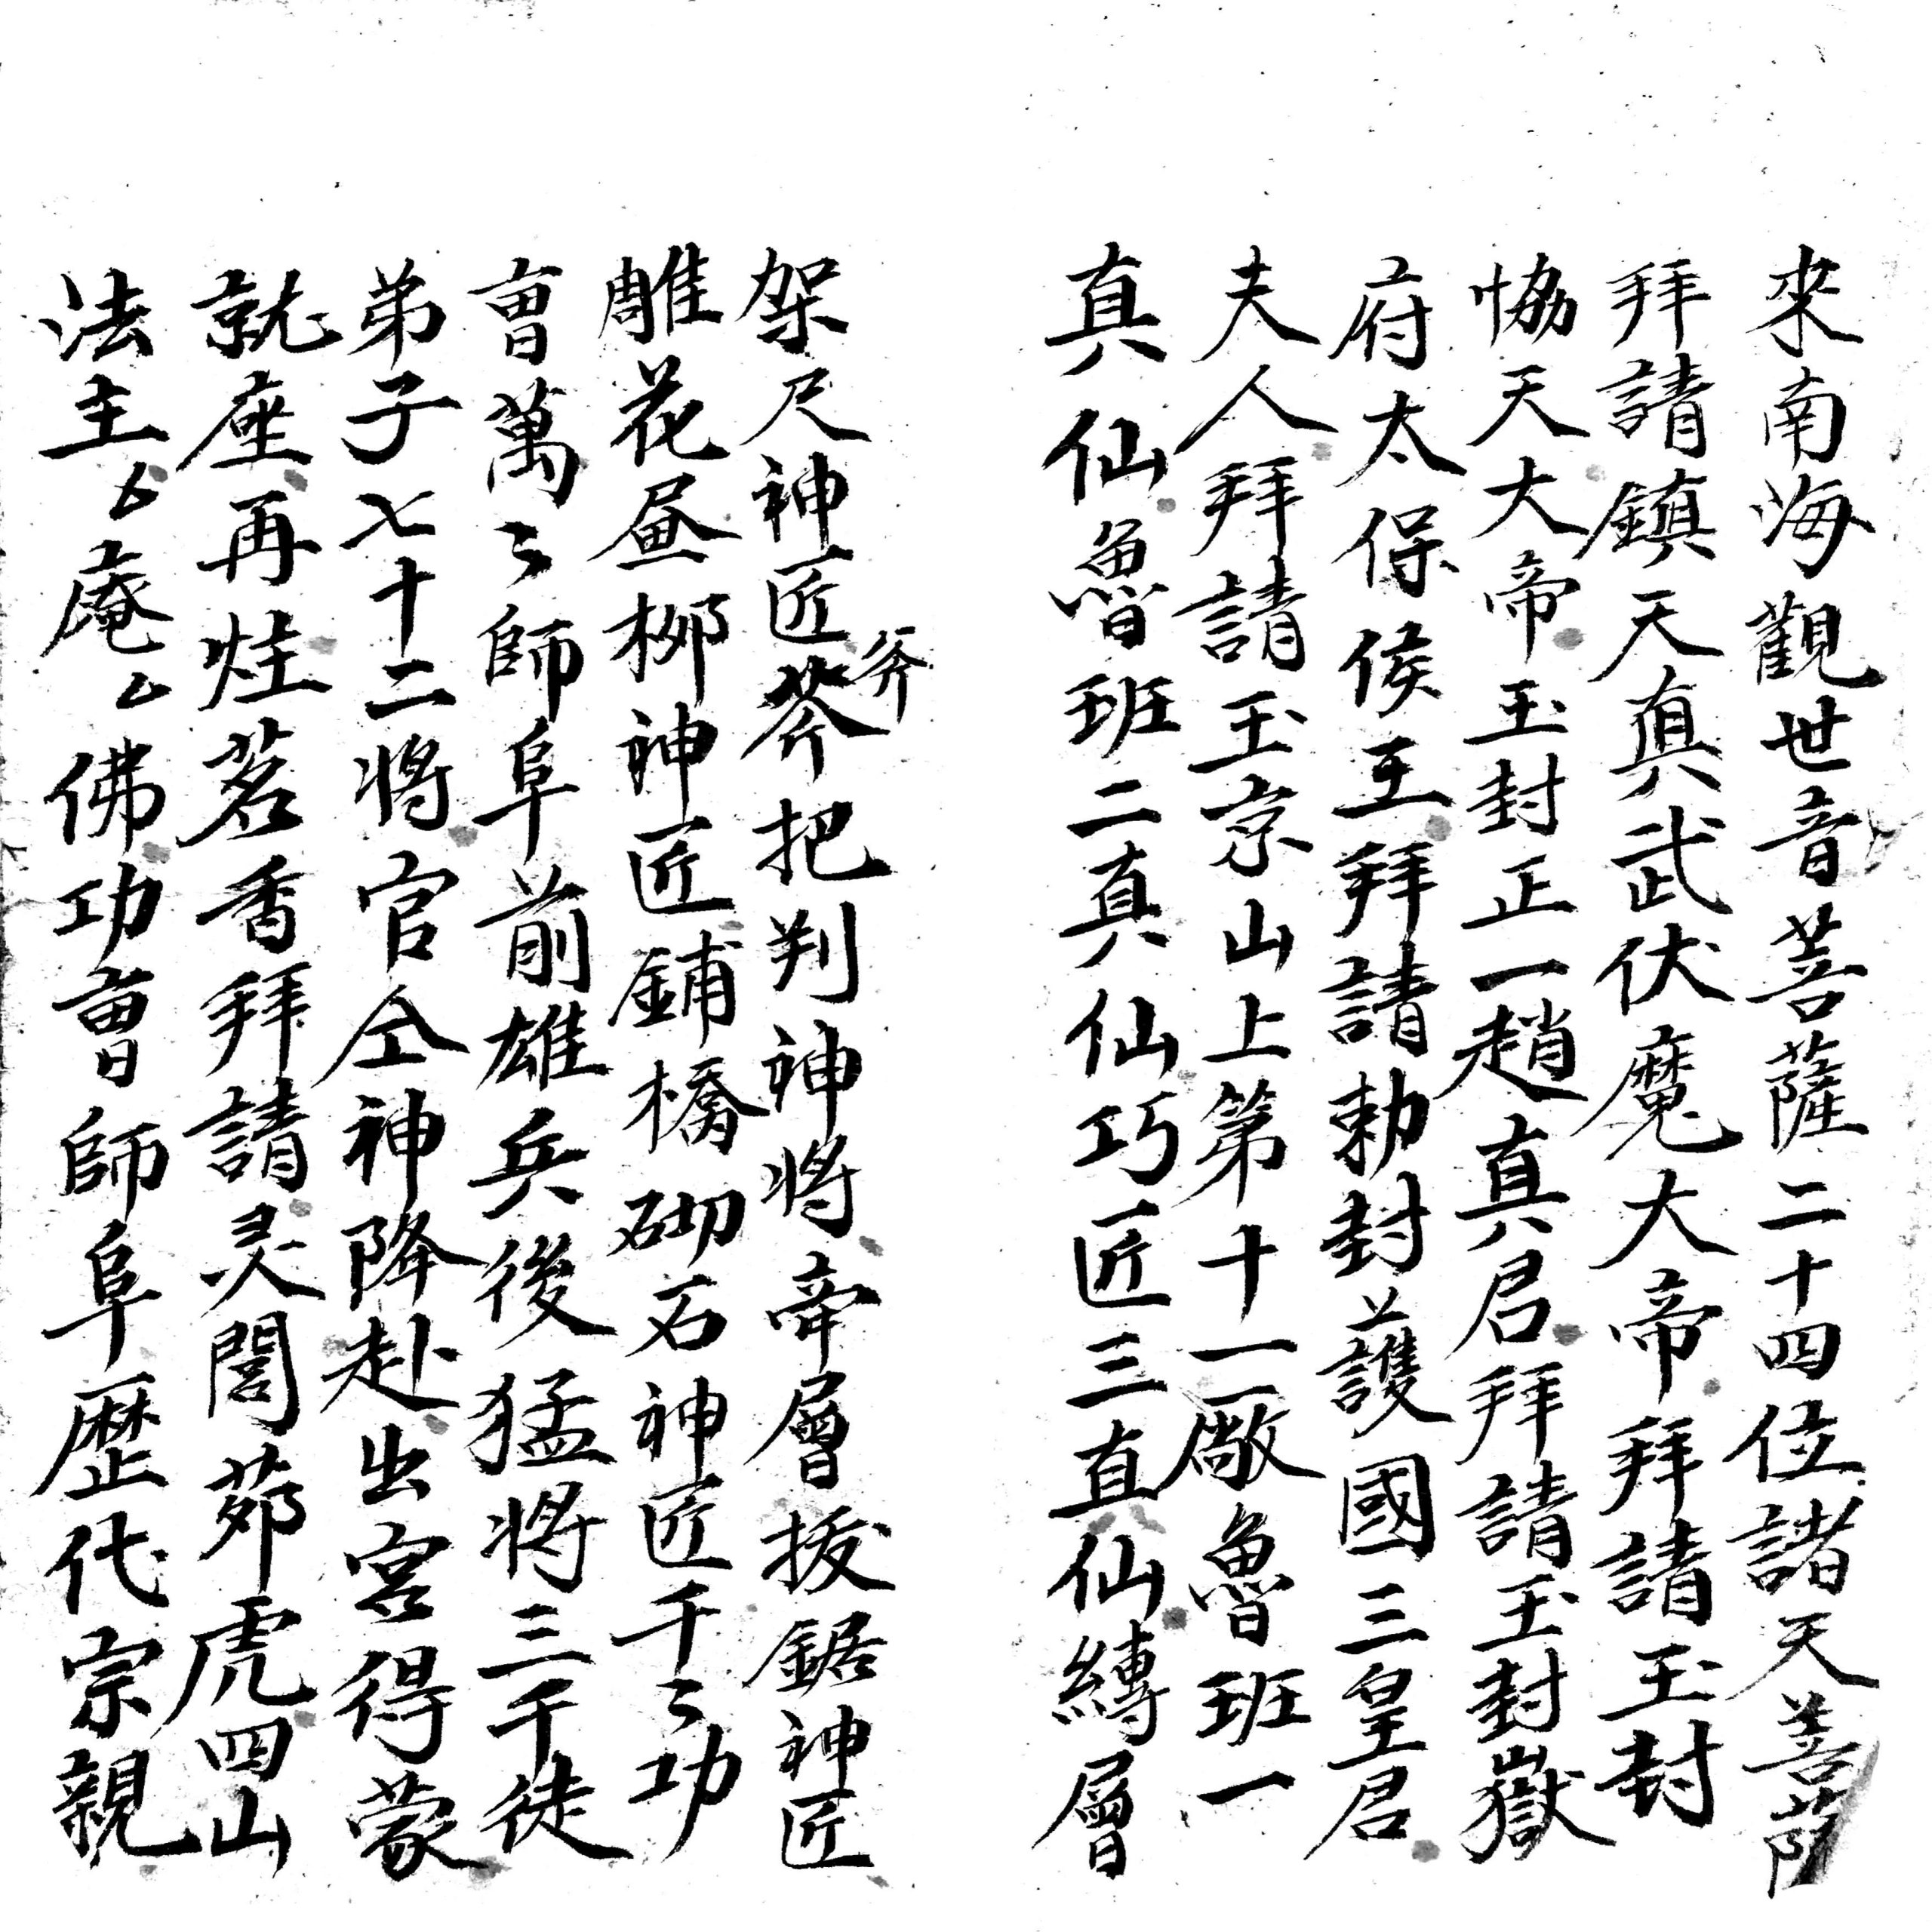 來南海觀世音菩薩二十四位諸天菩薩
拜請鎮天真武伏魔大帝拜請玉封
恊天大帝玉封正一趙真君拜請玉封嶽
府太保侯王拜請勅封護國三皇君
夫人拜請玉京山上第十一厰魯班一
真仙魯班二真仙巧匠三真仙縳層
架尺神匠斧把判神將牵層扳鋸神匠
斧
雕花昼柳神匠鋪橋砌石神匠千〻功
曺萬〻師阜前雄兵後猛將三千徒
弟子七十二將官仝神降赴出宮得蒙
就座再炷茗香拜請灵閭茆虎四山
法主公庵公佛功曺師阜歷代宗親